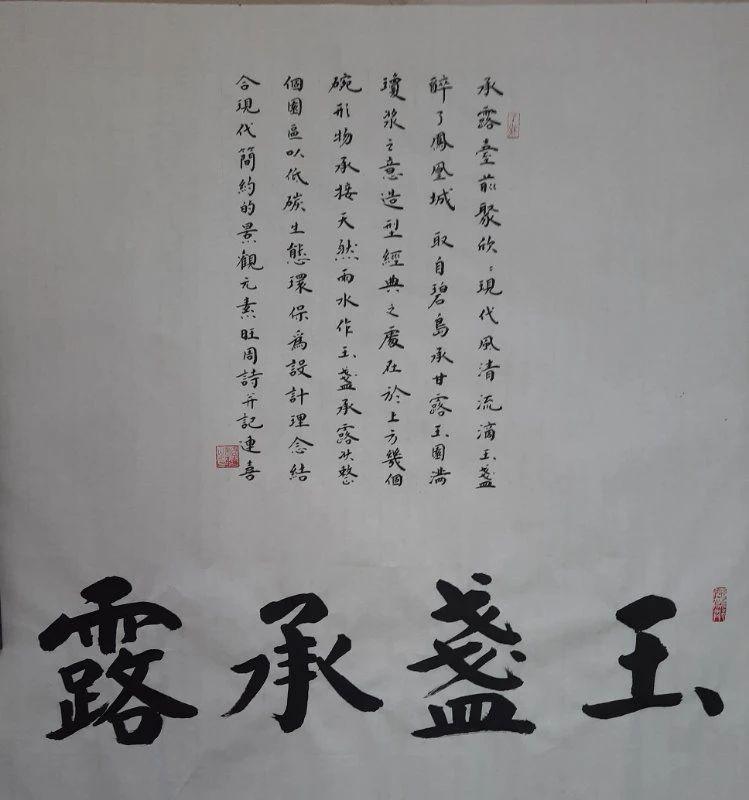 承露臺前聚欣〻現代風清流滴玉盞
醉了鳳凰城 取自碧島承甘露玉園滿
瓊漿之意造型經典之處在於上方幾個
碗形物承接天然雨水作玉盞承露狀整
個園區以低碳生態環保爲設計理念結
合現代簡約的景觀元素旺周詩并記連喜
玉盞承露